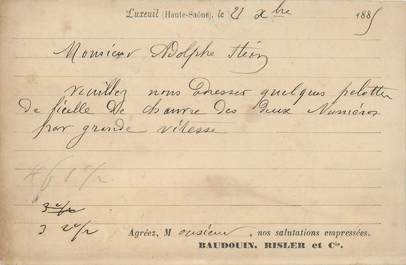 Luxeuil (Haute-Saône), le 21 Xbre 1885
Monsieur Adolphe
veuillez nous adresser quelques pelottes
de ficelle de chanvre des deux Numéros
par grande vitesse
Agréez, Monsieur, nos salutations empressées.
BAUDOUIN, RISLER et Cie.